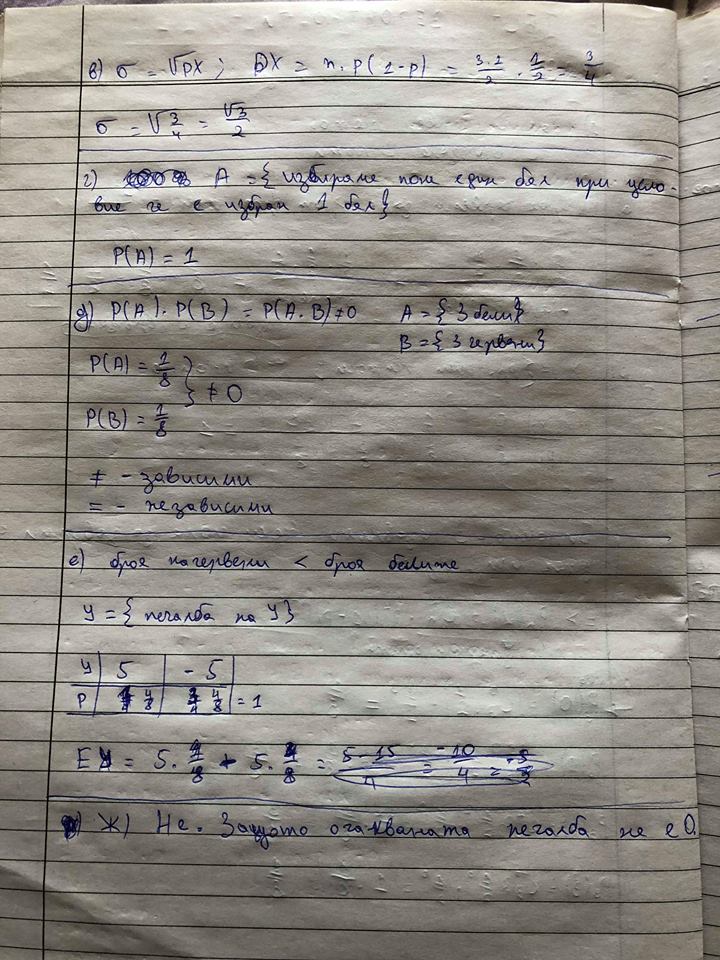 в) σ = √DX ; DX = n.p(1-p) = 3.1/2 . 1/2 = 3/4
σ = √3/4 = √3/2
г) A = { избираме поне един бял при усло-
вие че е избран 1 бял}
P(A) = 1
д) P(A).P(B) = P(A.B) ≠ 0 A = { 3 бели}
B = { 3 червени}
P(A) = 1/8
} ≠ 0
P(B) = 1/8
≠ - зависими
= - независими
е) броя на червени < броя белите
У = { печалба на У}
У | 5 | - 5
P | 4/8 | 4/8 = 1
EУ = 5. 4/8 - 5. 4/8 = 5-15/4 = -10/4 = -5/2
Ж) Не. Защото очакваната печалба не е 0.